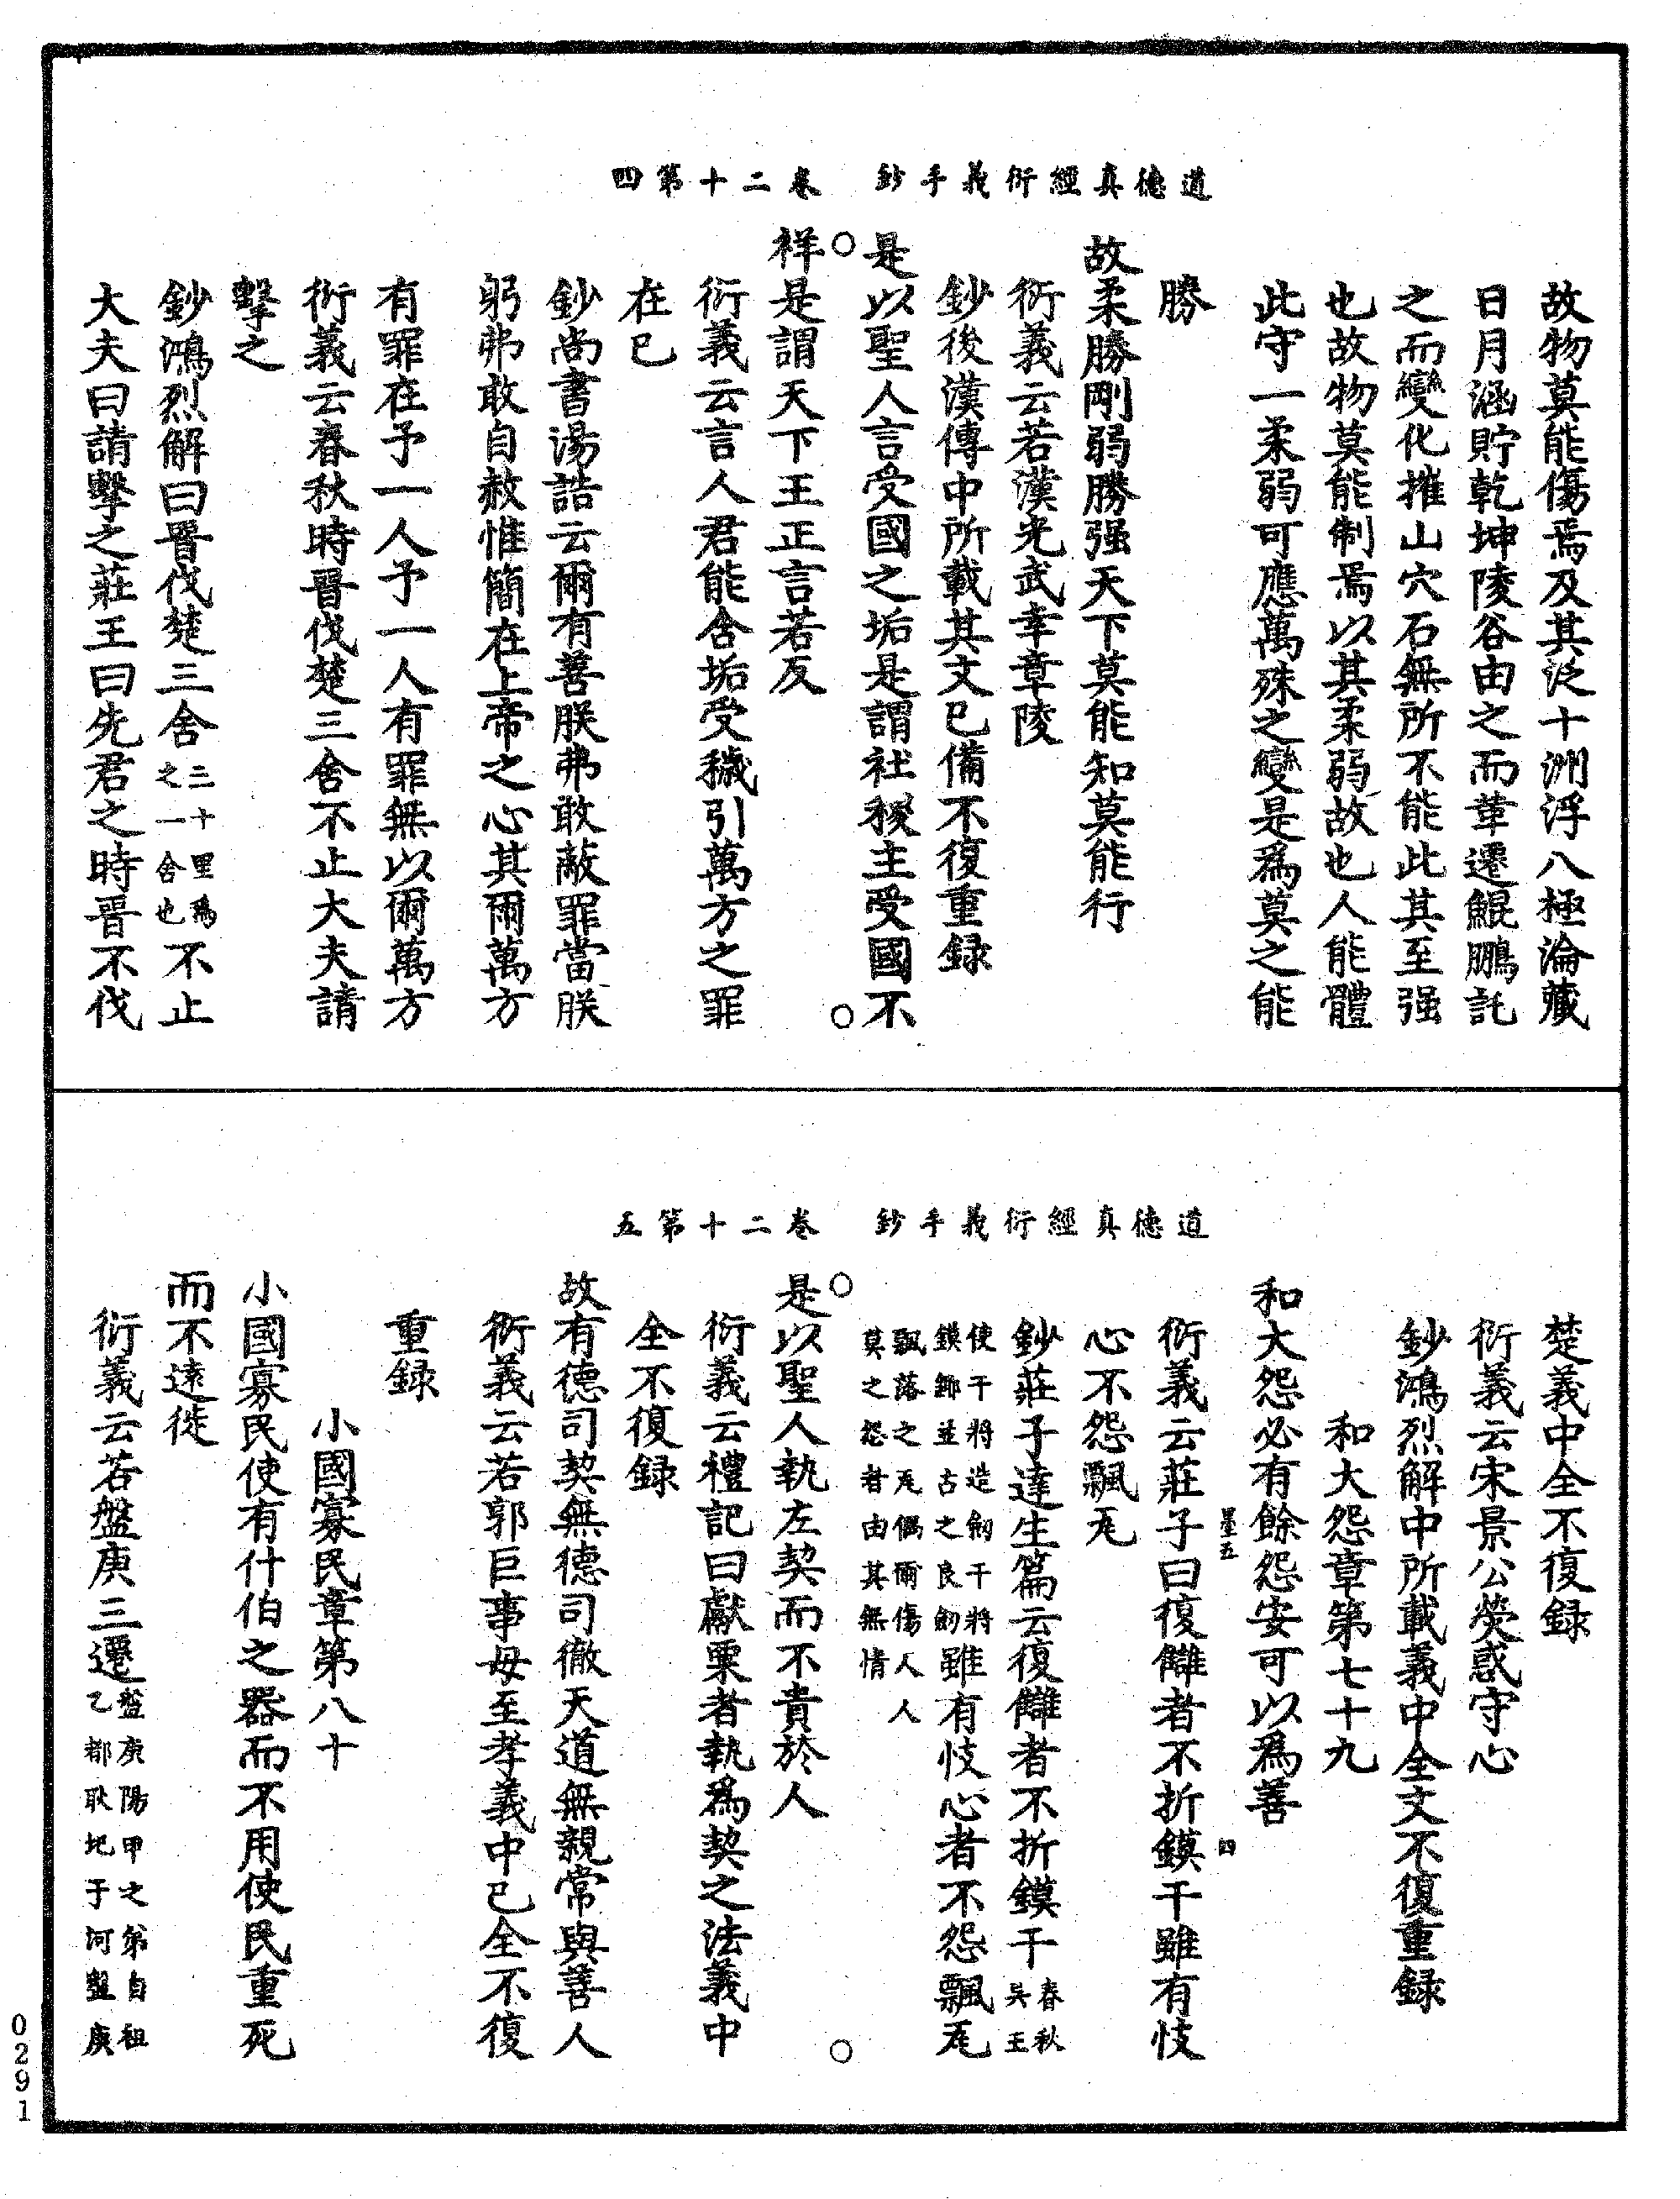 道德真經衍義手鈔　卷二十第四
故物莫能傷焉及其泛十洲浮八極淪藏
日月涵貯乾坤陵谷由之而革遷鯤鵬託
之而變化摧山穴石無所不能此其至强
也故物莫能制焉以其柔弱故也人能體
此守一柔弱可應萬殊之變是爲莫之能
勝
故柔勝剛弱勝强天下莫能知莫能行
衍義云若漢光武幸章陵
鈔後漢傳中所載其文已備不復重録
是以聖人言受國之垢是謂社稷主受國不
祥是謂天下王正言若反
衍義云言人君能含垢受穢引萬方之罪
在已
鈔尚書湯誥云爾有善朕弗敢蔽罪當朕
躬弗敢自赦惟簡在上帝之心其爾萬方
有罪在予一人予一人有罪無以爾萬方
衍義云春秋時晋伐楚三舍不止大夫請
擊之
鈔鴻烈解曰晋伐楚三舍三十里爲之一舍也不止
大夫曰請擊之莊王曰先君之時晋不伐
道德真經衍義手鈔　卷二十第五
楚義中全不復録
衍義云宋景公熒惑守心
鈔鴻烈解中所載義中全文不復重録
和大怨章第七十九
和大怨必有餘怨安可以爲善
墨五　四
衍義云莊子曰復讎者不折鏌干雖有忮
心不怨飄瓦
鈔莊子達生篇云復讎者不折鏌干春秋吴王
使干將造劒干將鏌鎁並古之良劒雖有忮心者不怨飄瓦
飄落之瓦偶爾傷人人莫之怨者由其無情
是以聖人執左契而不責於人
衍義云禮記曰獻粟者執爲契之法義中
全不復録
故有德司契無德司徹天道無親常與善人
衍義云若郭巨事母至孝義中已全不復
重録
小國寡民章第八十
小國寡民使有什伯之器而不用使民重死
而不遠徙
衍義云若盤庚三遷盤庚陽甲之弟自祖乙都耿圯于河盤庚
0291